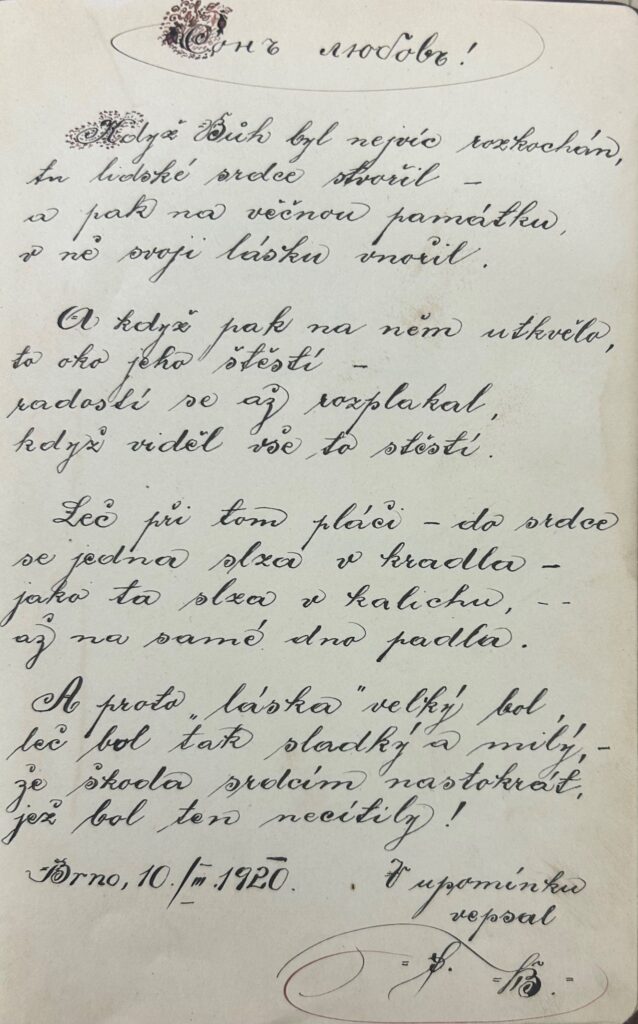 Сонъ любовъ!
Když Bůh byl nejvíc rozkochán,
tu lidské srdce stvořil –
a pak na věčnou památku,
v ně svoji lásku vnořil.
A když pak na něm utkvělo,
to oko jeho štěstí –
radostí se až rozplakal,
když viděl vše to stěstí.
Leč při tom pláči – do srdce
se jedna slza v kradla –
jako ta slza v kalichu, --
až na samé dno padla.
A proto „láska" velký bol,
leč bol tak sladký a milý, –
že škoda srdcím nastokrát,
jež bol ten necítily!
Brno, 10./III.1920.
V upomínku
vepsal
B.